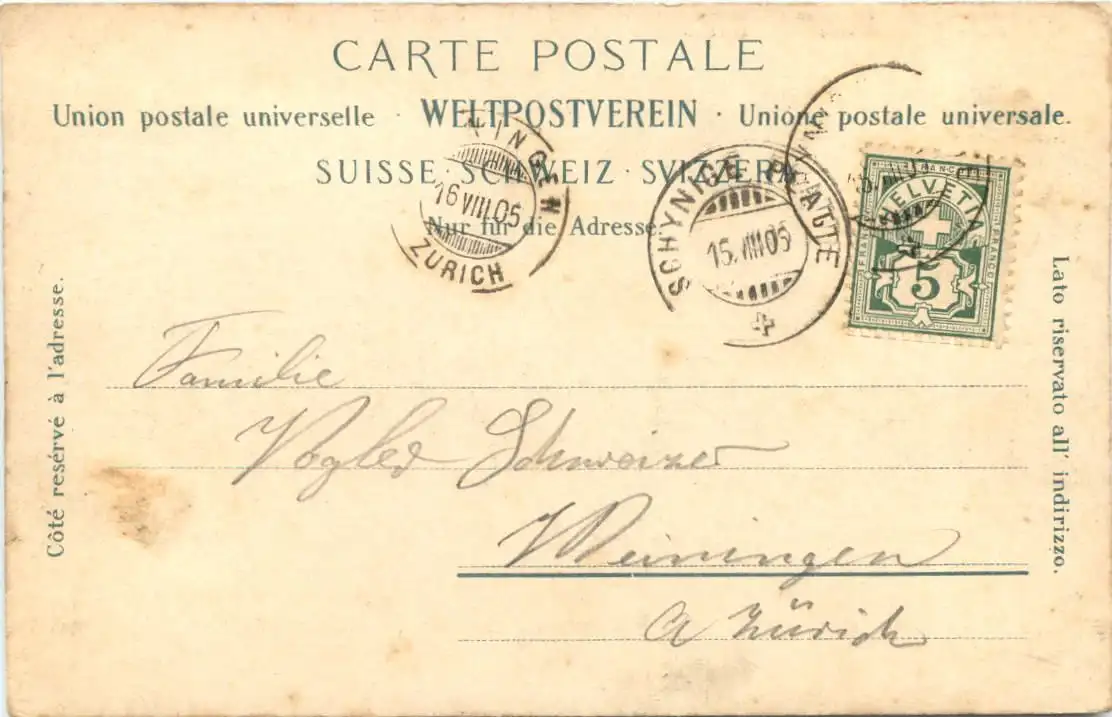 CARTE POSTALE
Union postale universelle · WELTPOSTVEREIN · Unione postale universale.
SUISSE · SCHWEIZ · SVIZZERA
Nur für die Adresse.
Côté resérvé à l'adresse.
Lato riservato all' indirizzo.
NINGEN
16 VIII.05
ZÜRICH
SCHYNIGE PLATTE
15.VIII.05
HELVETIA
FRANCO
FRANCO
5
Familie
Vogler Schweizer
Weiningen
a Zürich